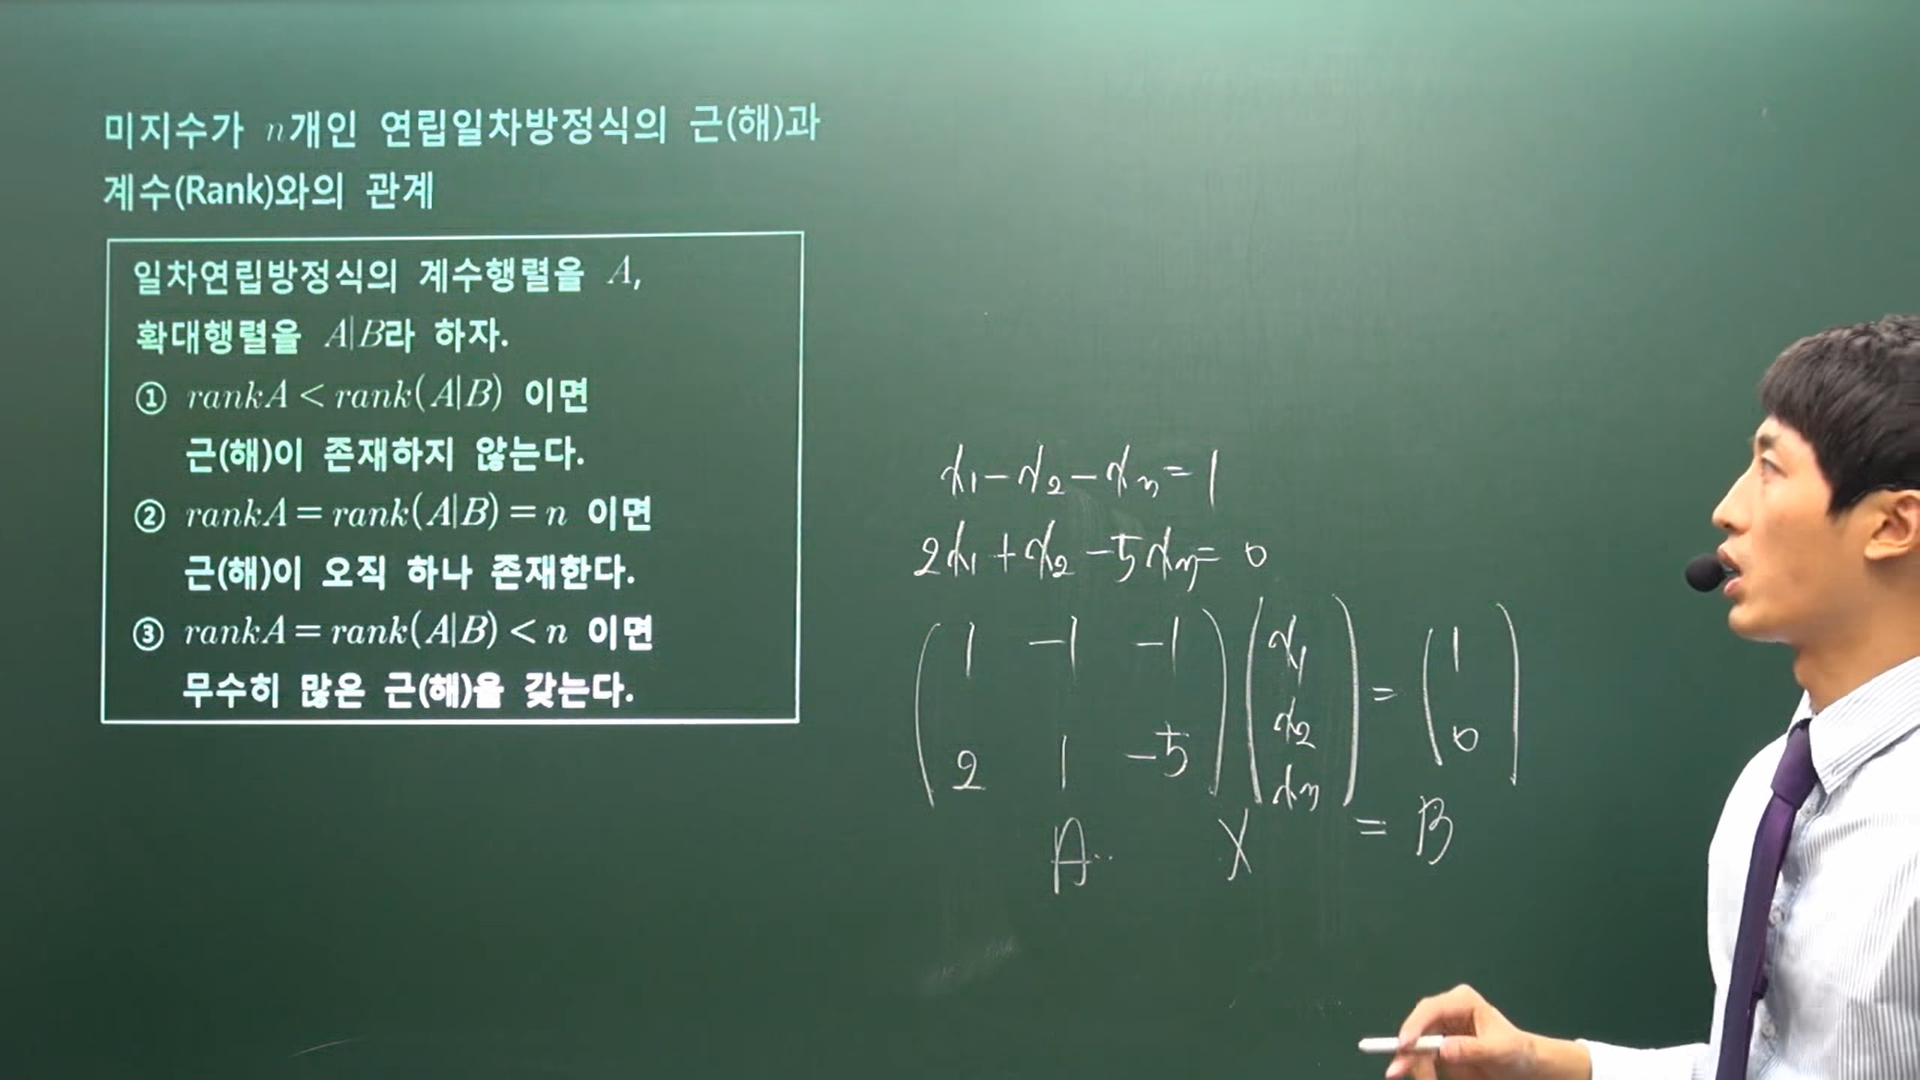 미지수가 n개인 연립일차방정식의 근(해)과
계수(Rank)와의 관계
일차연립방정식의 계수행렬을 A,
확대행렬을 A|B라 하자.
① rankA < rank(A|B) 이면
근(해)이 존재하지 않는다.
② rankA = rank(A|B) = n 이면
근(해)이 오직 하나 존재한다.
③ rankA = rank(A|B) < n 이면
무수히 많은 근(해)을 갖는다.
x₁ - x₂ - xₙ = 1
2x₁ + x₂ - 5xₙ = 0
( 1 -1 -1 ) ( x₁ ) = ( 1 )
x₂ 0
2 1 -5 xₙ
A X = B